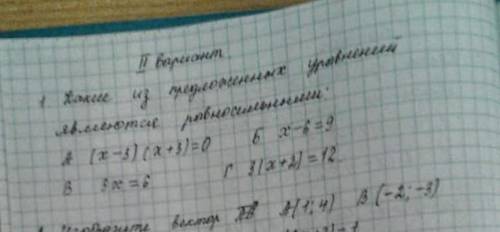 II вариант.
1 Какие из предложенных уравнений
являются равносильными:
А (x-3)(x+3)=0 Б x-6=9
В 3x=6 Г 3(x+2)=12
вектор АВ A(1;4) B(-2;-3)